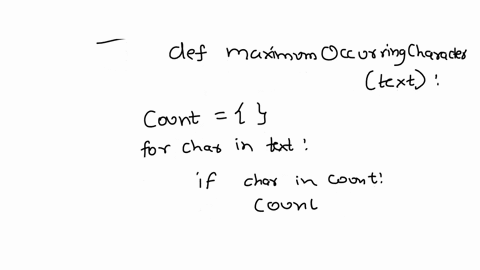 def maximumOccurringCharacter
(text):
Count = { }
for char in text:
if char in count:
count